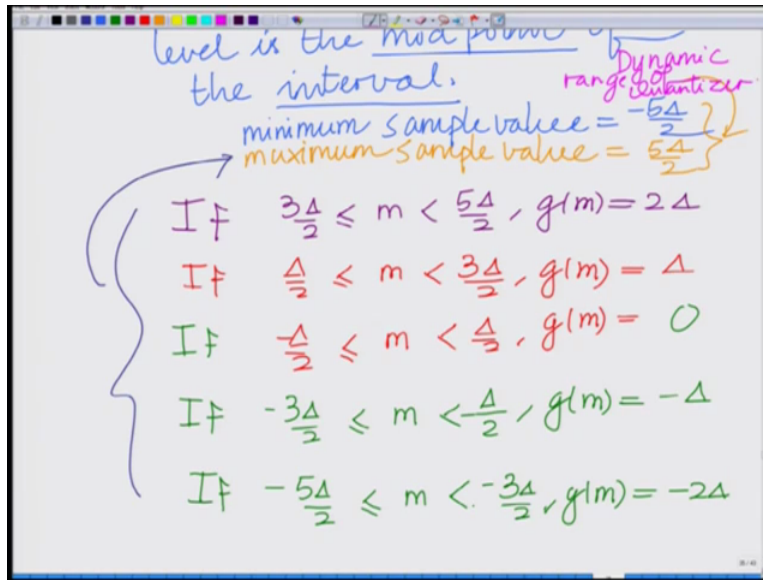 level is the mid point of
the interval.
Dynamic
range of
Quantizer.
minimum sample value = -5Δ/2
maximum sample value = 5Δ/2
If 3Δ/2 ≤ m < 5Δ/2, g(m) = 2Δ
If Δ/2 ≤ m < 3Δ/2, g(m) = Δ
If -Δ/2 ≤ m < Δ/2, g(m) = 0
If -3Δ/2 ≤ m < -Δ/2, g(m) = -Δ
If -5Δ/2 ≤ m < -3Δ/2, g(m) = -2Δ